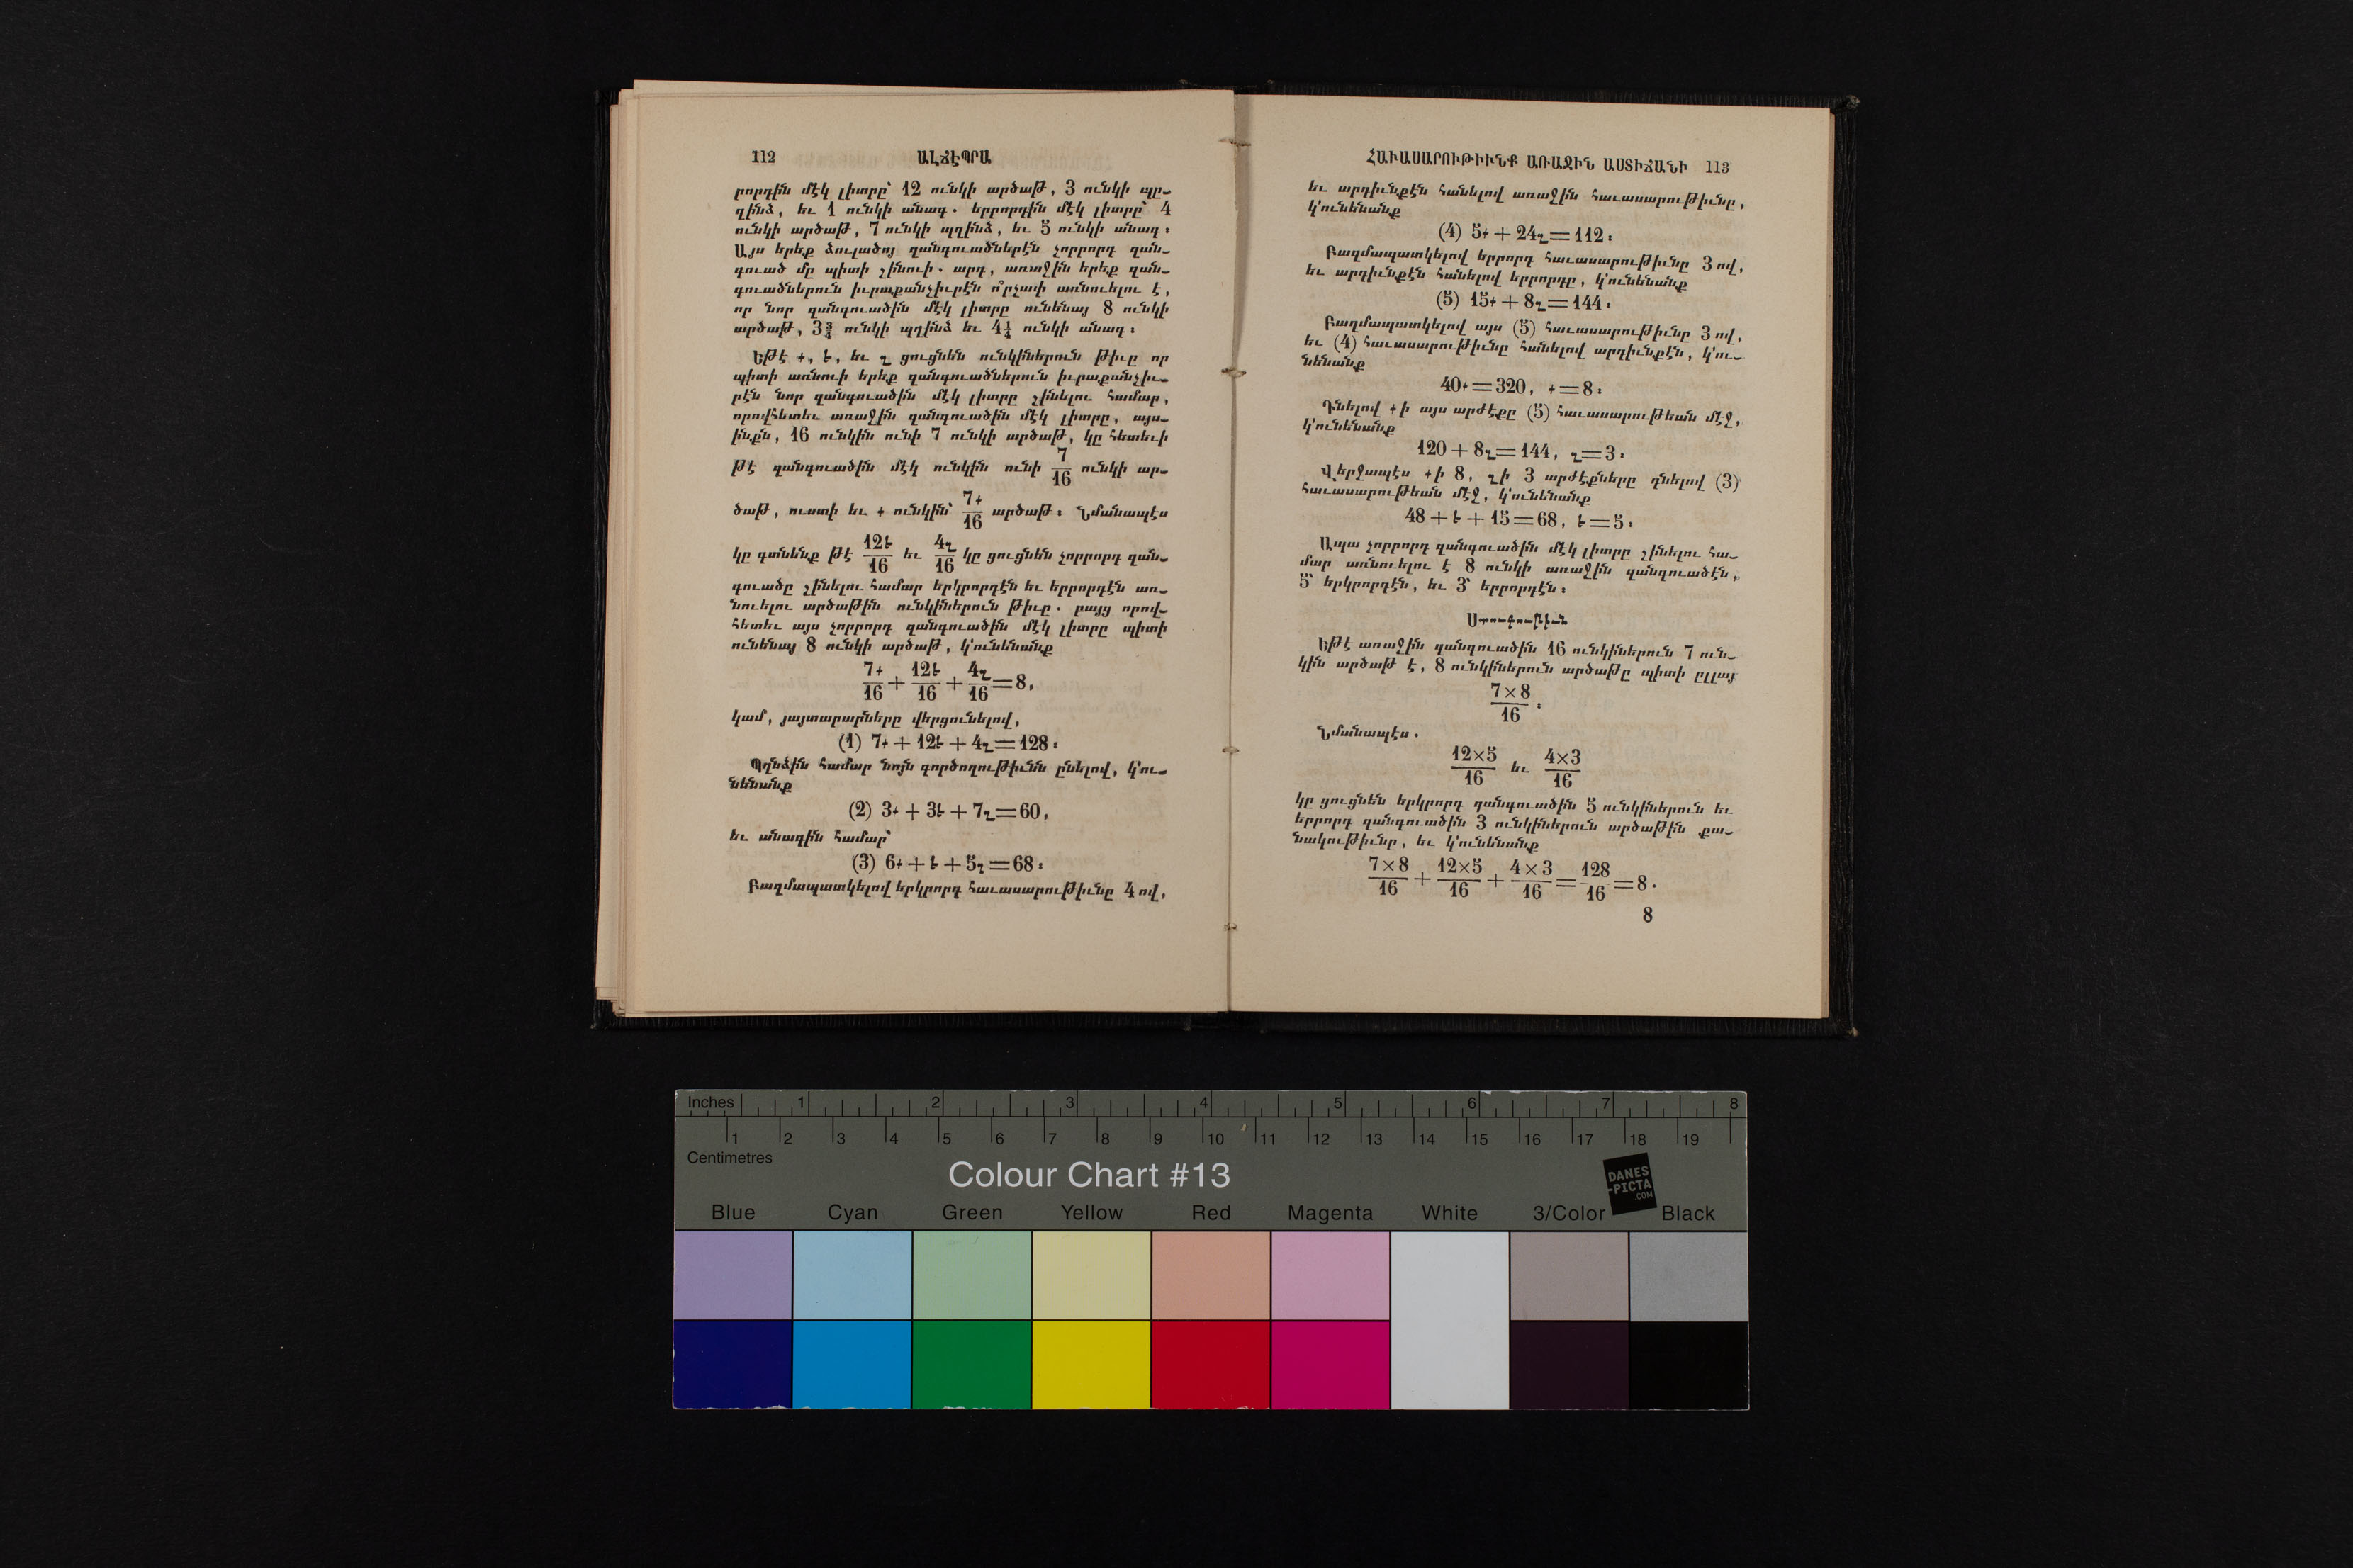 112 ԱԼՃԷՊՐԱ
րորդին մէկ լիտրը՝ 12 ունկի արծաթ, 3 ունկի պը-
ղինձ, եւ 1 ունկի անագ. երրորդին մէկ լիտրը՝ 4
ունկի արծաթ, 7 ունկի պղինձ, եւ 5 ունկի անագ։
Այս երեք ձուլածոյ զանգուածներէն չորրորդ զան-
գուած մը պիտի շինուի. արդ, առաջին երեք զան-
գուածներուն իւրաքանչիւրէն ո՞րչափ առնուելու է,
որ նոր զանգուածին մէկ լիտրը ունենայ 8 ունկի
արծաթ, 3¾ ունկի պղինձ եւ 4¼ ունկի անագ։
Եթէ ւ, ե, եւ շ ցուցնեն ունկիներուն թիւը որ
պիտի առնուի երեք զանգուածներուն իւրաքանչիւ-
րէն նոր զանգուածին մէկ լիտրը շինելու համար,
որովհետեւ առաջին զանգուածին մէկ լիտրը, այս-
ինքն, 16 ունկին ունի 7 ունկի արծաթ, կը հետեւի
թէ զանգուածին մէկ ունկին ունի 7/16 ունկի ար-
ծաթ, ուստի եւ ւ ունկին՝ 7ւ/16 արծաթ։ Նմանապէս
կը գտնենք թէ 12ե/16 եւ 4շ/16 կը ցուցնեն չորրորդ զան-
գուածը շինելու համար երկրորդէն եւ երրորդէն առ-
նուելու արծաթին ունկիներուն թիւը. բայց որով-
հետեւ այս չորրորդ զանգուածին մէկ լիտրը պիտի
ունենայ 8 ունկի արծաթ, կ՚ունենանք
7ւ/16 + 12ե/16 + 4շ/16 = 8,
կամ, յայտարարները վերցունելով,
(1) 7ւ + 12ե + 4շ = 128։
Պղնձին համար նոյն գործողութիւնն ընելով, կ՚ու-
նենանք
(2) 3ւ + 3ե + 7շ = 60,
եւ անագին համար՝
(3) 6ւ + ե + 5շ = 68։
Բազմապատկելով երկրորդ հաւասարութիւնը 4 ով,
ՀԱՒԱՍԱՐՈՒԹԻՒՆՔ ԱՌԱՋԻՆ ԱՍՏԻՃԱՆԻ 113
եւ արդիւնքէն հանելով առաջին հաւասարութիւնը,
կ՚ունենանք
(4) 5ւ + 24շ = 112։
Բազմապատկելով երրորդ հաւասարութիւնը 3 ով,
եւ արդիւնքէն հանելով երրորդը, կ՚ունենանք
(5) 15ւ + 8շ = 144։
Բազմապատկելով այս (5) հաւասարութիւնը 3 ով,
եւ (4) հաւասարութիւնը հանելով արդիւնքէն, կ՚ու-
նենանք
40ւ = 320, ւ = 8։
Դնելով ւ ի այս արժէքը (5) հաւասարութեան մէջ,
կ՚ունենանք
120 + 8շ = 144, շ = 3։
Վերջապէս ւ ի 8, շ ի 3 արժէքները դնելով (3)
հաւասարութեան մէջ, կ՚ունենանք
48 + ե + 15 = 68, ե = 5։
Ապա չորրորդ զանգուածին մէկ լիտրը շինելու հա-
մար առնուելու է 8 ունկի առաջին զանգուածէն,
5՝ երկրորդէն, եւ 3՝ երրորդէն։
Ստուգութիւն
Եթէ առաջին զանգուածին 16 ունկիներուն 7 ուն-
կին արծաթ է, 8 ունկիներուն արծաթը պիտի ըլլայ
7×8/16 ։
Նմանապէս.
12×5/16 եւ 4×3/16
կը ցուցնեն երկրորդ զանգուածին 5 ունկիներուն եւ
երրորդ զանգուածին 3 ունկիներուն արծաթին քա-
նակութիւնը, եւ կ՚ունենանք
7×8/16 + 12×5/16 + 4×3/16 = 128/16 = 8.
8
Inches 1 2 3 4 5 6 7 8
1 2 3 4 5 6 7 8 9 10 11 12 13 14 15 16 17 18 19
Centimetres
Colour Chart #13
DANES
-PICTA
.COM
Blue Cyan Green Yellow Red Magenta White 3/Color Black